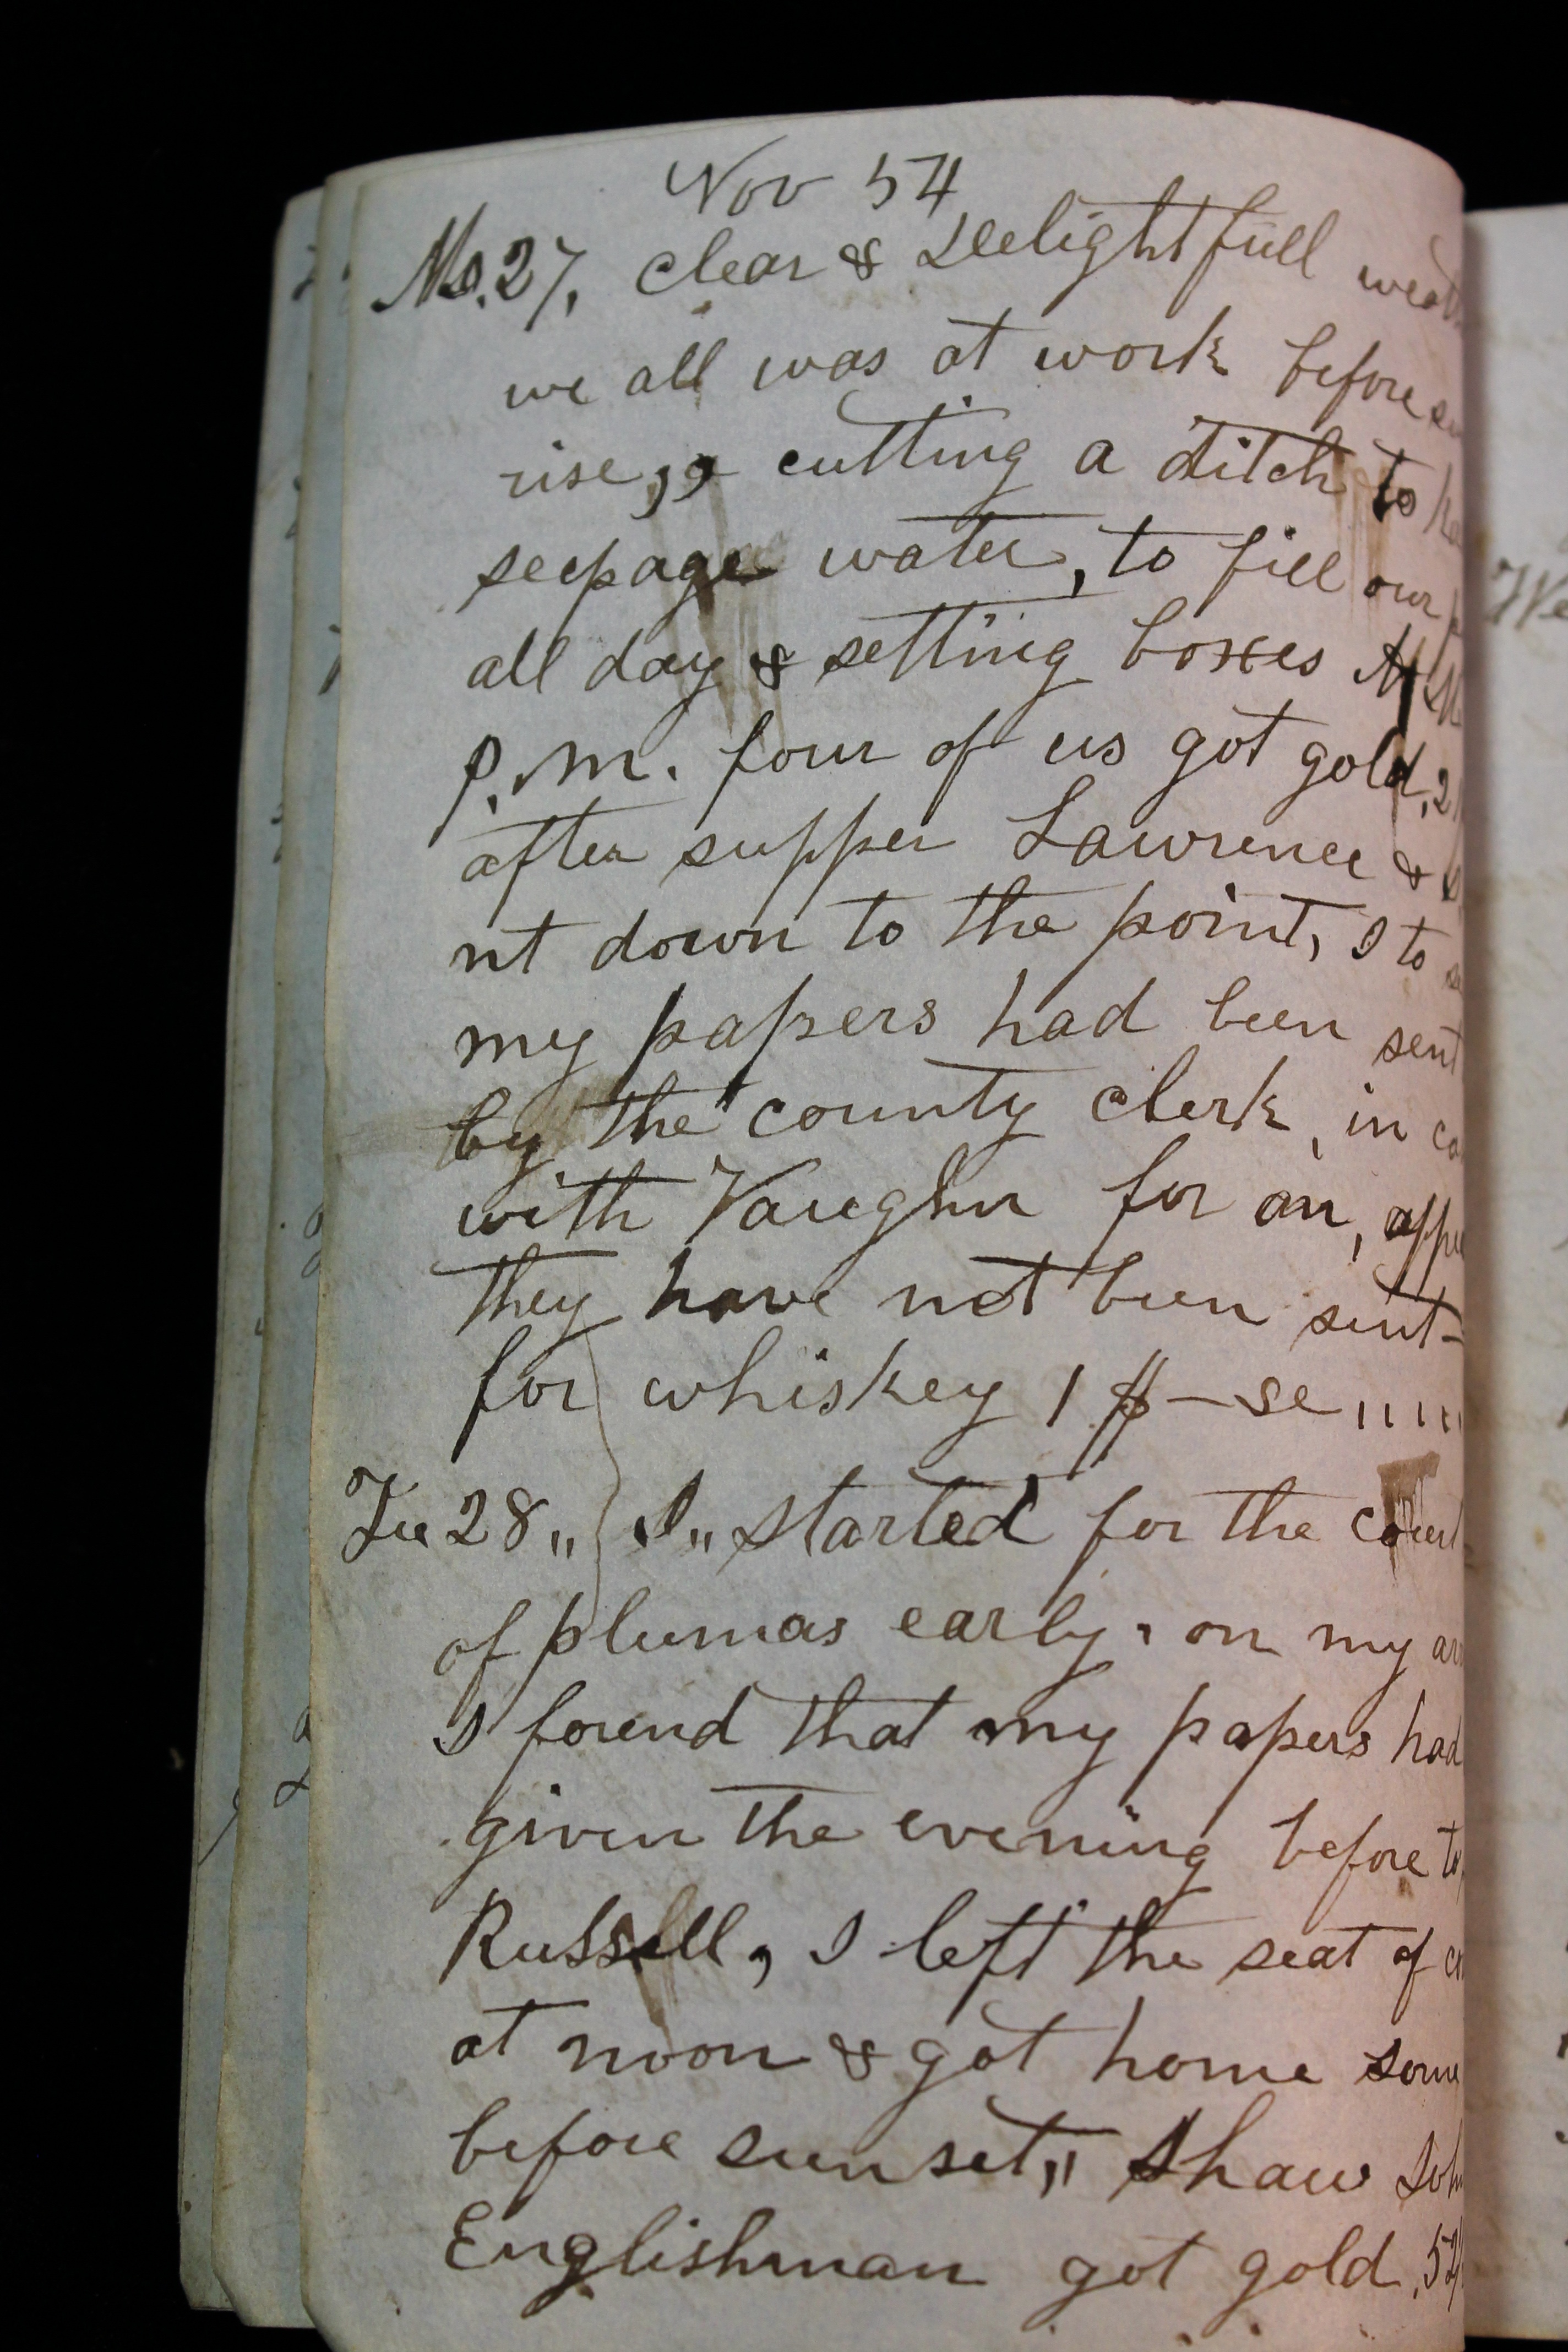 Nov 54
Mo. 27, clear & Delightfull
we all was at work before
rise, & cutting a ditch to
seepage water, to fill our
all day & setting boxes
P.M. four of us got gold, 2
after supper Lawrence &
nt down to the point, I to
my papers had been sent
by the county clerk, in
with Vaughn for an,
they have not been sent
for whiskey 1 $ — se,,,,,
Tu 28,, I,, started for the
of plumas early, on my
I found that my papers had
given the evening before to
Russell, I left the seat of
at noon & got home some
before sunset,, Shaw
Englishman got gold, 52
We